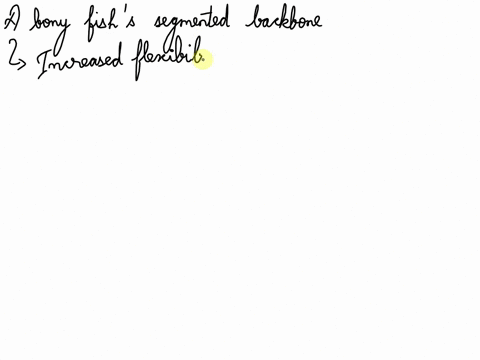 A) bony fish's segmented backbone
↳ Increased flexibib